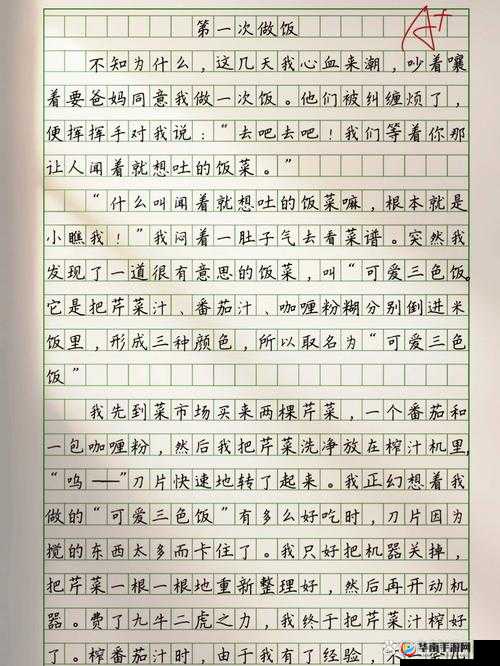 第一次做饭
A+
不知为什么，这几天我心血来潮，吵着嚷
着要爸妈同意我做一次饭。他们被纠缠烦了，
便挥挥手对我说：“去吧去吧！我们等着你那
让人闻着就想吐的饭菜。”
“什么叫闻着就想吐的饭菜嘛，根本就是
小瞧我！”我闷着一肚子气去看菜谱。突然我
发现了一道很有意思的饭菜，叫“可爱三色饭，
它是把芹菜汁、番茄汁、咖喱粉糊分别倒进米
饭里，形成三种颜色，所以取名为“可爱三色
饭”
我先到菜市场买来两棵芹菜，一个番茄和
一包咖喱粉，然后我把芹菜洗净放在榨汁机里，
“呜——”刀片快速地转了起来。我正幻想着我
做的“可爱三色饭”有多么好吃时，刀片因为
搅的东西太多而卡住了。我只好把机器关掉，
把芹菜一根一根地重新整理好，然后再开动机
器。费了九牛二虎之力，我终于把芹菜汁榨好
了。榨番茄汁时，由于我有了经验，不
华南手游网